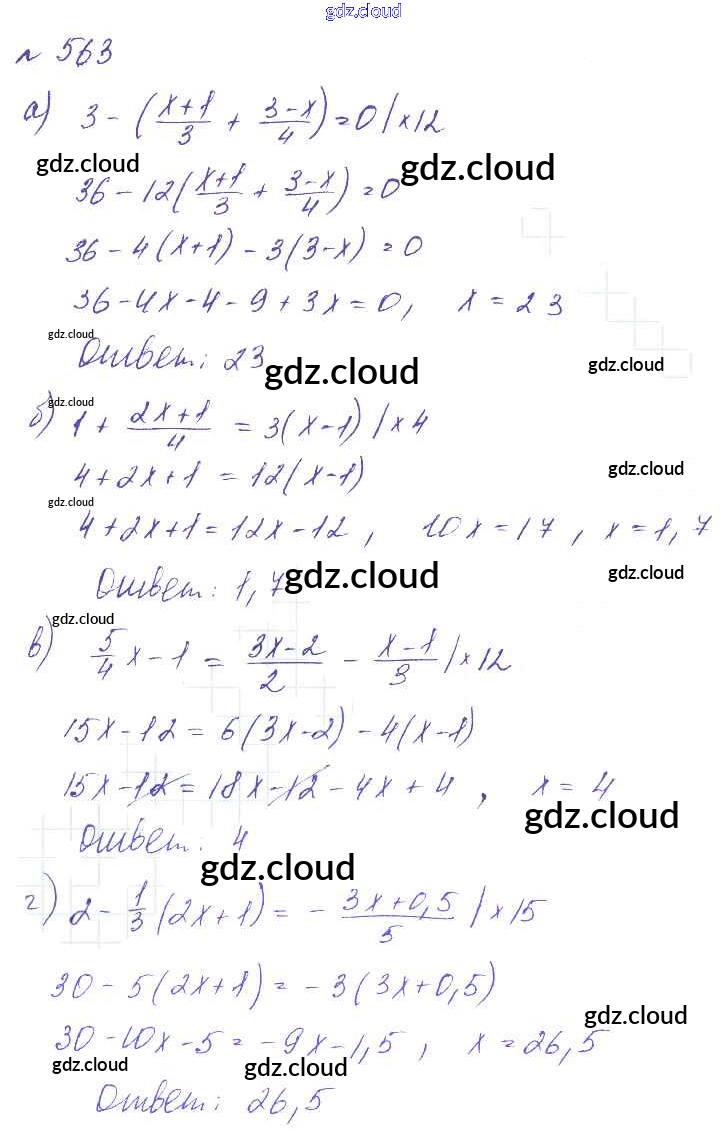 gdz.cloud
№ 563
а) 3 - ((x+1)/3 + (3-x)/4) = 0 | ×12
gdz.cloud gdz.cloud
36 - 12((x+1)/3 + (3-x)/4) = 0
36 - 4(x+1) - 3(3-x) = 0
36 - 4x - 4 - 9 + 3x = 0, x = 23
gdz.cloud
Ответ: 23
gdz.cloud gdz.cloud
gdz.cloud
б) 1 + (2x+1)/4 = 3(x-1) | ×4
4 + 2x + 1 = 12(x-1)
gdz.cloud
gdz.cloud
4 + 2x + 1 = 12x - 12, 10x = 17, x = 1,7
Ответ: 1,7
gdz.cloud gdz.cloud
gdz.cloud
в) 5/4 x - 1 = (3x-2)/2 - (x-1)/3 | ×12
15x - 12 = 6(3x-2) - 4(x-1)
15x - 12 = 18x - 12 - 4x + 4, x = 4
gdz.cloud
Ответ: 4
gdz.cloud
г) 2 - 1/3 (2x+1) = - (3x+0,5)/5 | ×15
30 - 5(2x+1) = -3(3x+0,5)
gdz.cloud
30 - 10x - 5 = -9x - 1,5, x = 26,5
gdz.cloud gdz.cloud
Ответ: 26,5